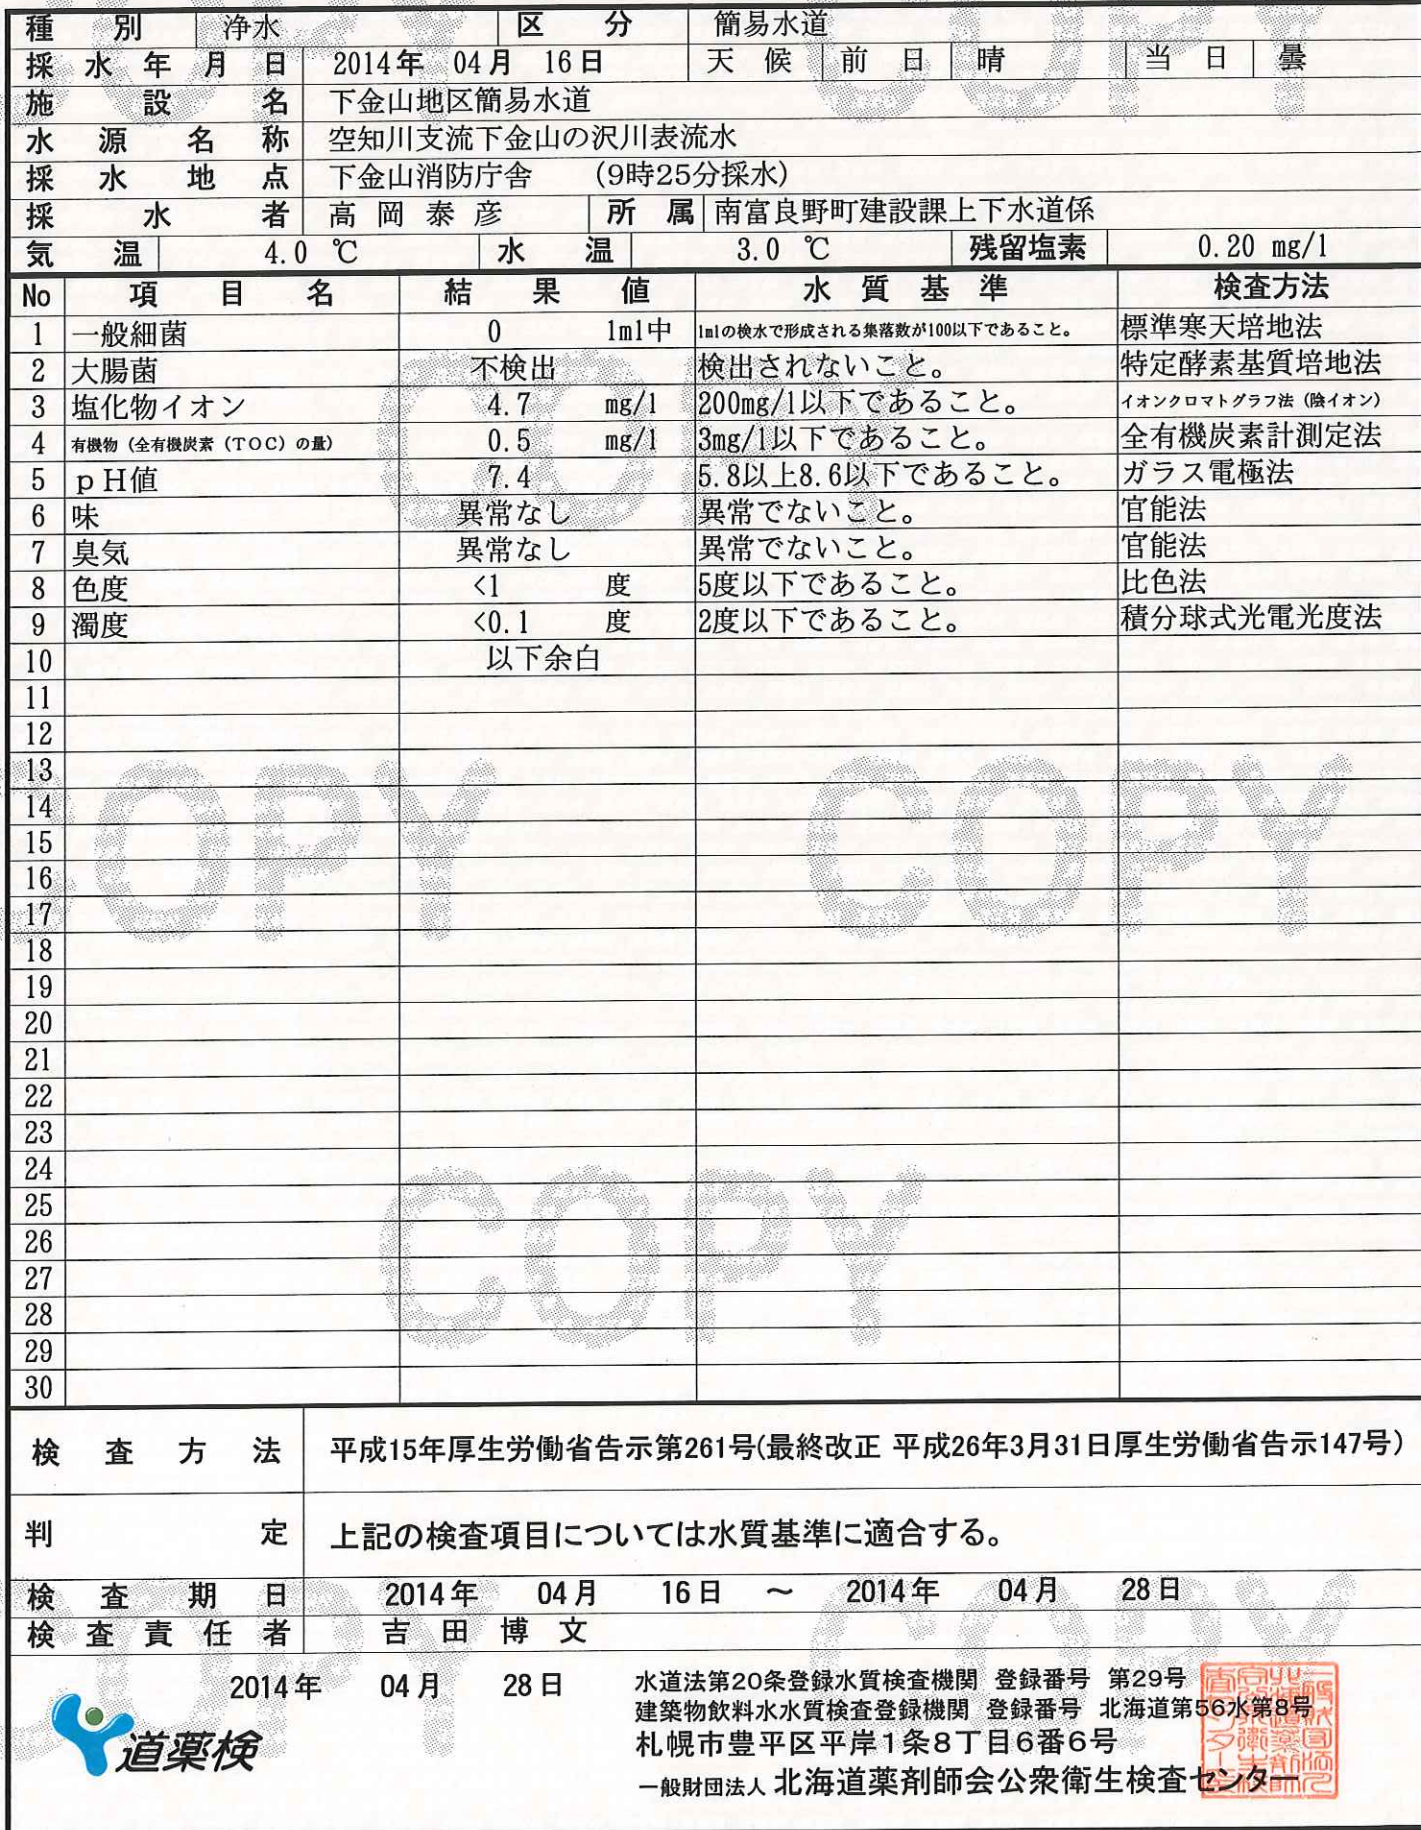 種別 浄水 区分 簡易水道
採水年月日 2014年 04月 16日 天候 前日 晴 当日 曇
施設名 下金山地区簡易水道
水源名称 空知川支流下金山の沢川表流水
採水地点 下金山消防庁舎 (9時25分採水)
採水者 高岡泰彦 所属 南富良野町建設課上下水道係
気温 4.0 ℃ 水温 3.0 ℃ 残留塩素 0.20 mg/l
No 項目名 結果値 水質基準 検査方法
1 一般細菌 0 1ml中 1mlの検水で形成される集落数が100以下であること。 標準寒天培地法
2 大腸菌 不検出 検出されないこと。 特定酵素基質培地法
3 塩化物イオン 4.7 mg/l 200mg/l以下であること。 イオンクロマトグラフ法(陰イオン)
4 有機物(全有機炭素(TOC)の量) 0.5 mg/l 3mg/l以下であること。 全有機炭素計測定法
5 pH値 7.4 5.8以上8.6以下であること。 ガラス電極法
6 味 異常なし 異常でないこと。 官能法
7 臭気 異常なし 異常でないこと。 官能法
8 色度 <1 度 5度以下であること。 比色法
9 濁度 <0.1 度 2度以下であること。 積分球式光電光度法
10 以下余白
11
12
13
14
15
16
17
18
19
20
21
22
23
24
25
26
27
28
29
30
検査方法 平成15年厚生労働省告示第261号(最終改正 平成26年3月31日厚生労働省告示147号)
判定 上記の検査項目については水質基準に適合する。
検査期日 2014年 04月 16日 ～ 2014年 04月 28日
検査責任者 吉田博文
2014年 04月 28日
道薬検
水道法第20条登録水質検査機関 登録番号 第29号
建築物飲料水水質検査登録機関 登録番号 北海道第56水第8号
札幌市豊平区平岸1条8丁目6番6号
一般財団法人 北海道薬剤師会公衆衛生検査センター
COPY
COPY
COPY
COPY
COPY
COPY
COPY
COPY